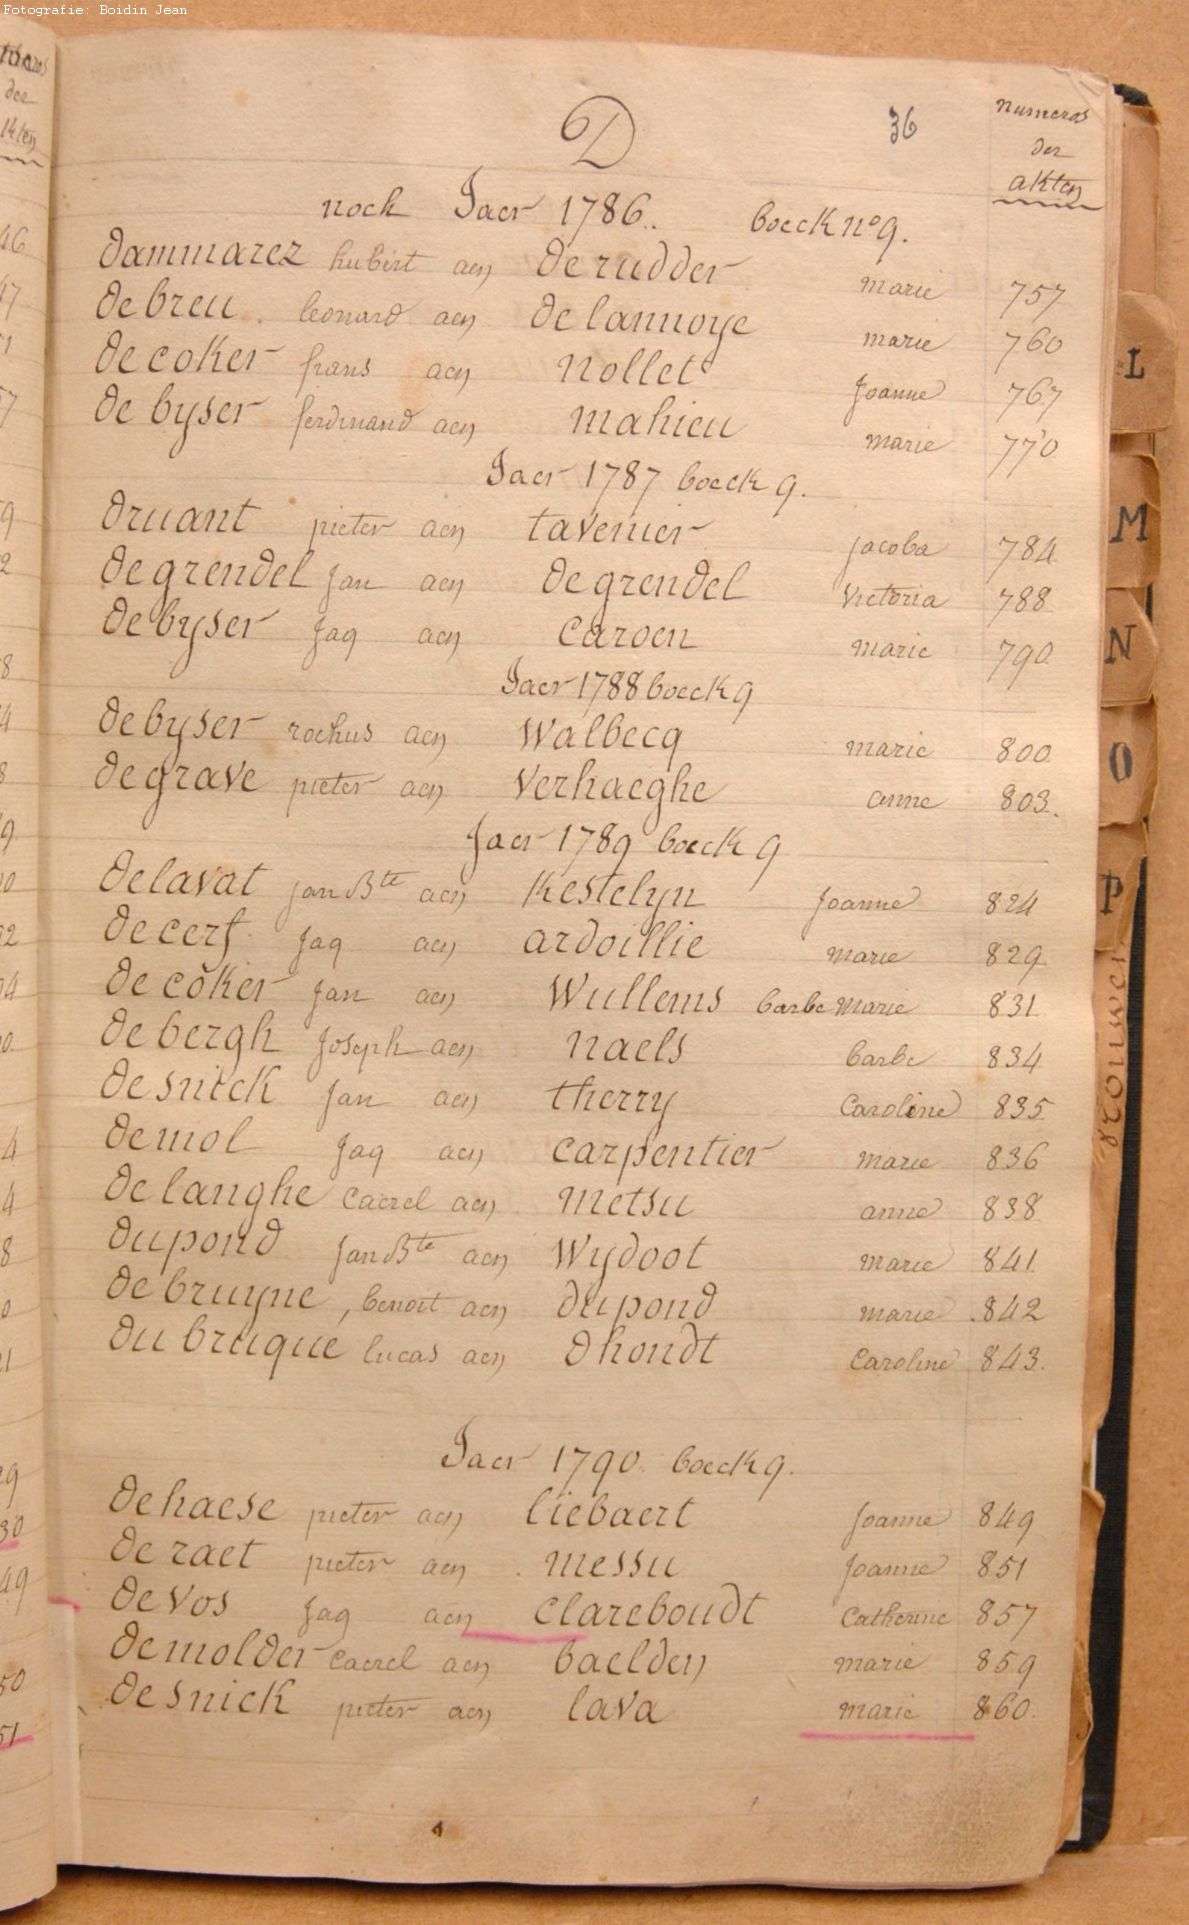 Fotografie: Boidin Jean
D 36 numeros
der
akten
noch Jaer 1786. boeck nº 9.
dammarez hubert aen derudder marie 757
debreu leonard aen delannoye marie 760
decoker frans aen nollet Joanne 767
de byser ferdinand aen mahieu marie 770
Jaer 1787 boeck 9.
druant pieter aen tavenier jacoba 784
degrendel Jan aen degrendel victoria 788
debyser Jaq aen caroen marie 790
Jaer 1788 boeck 9
debyser rochus aen walbecq marie 800
degrave pieter aen verhaeghe anne 803.
Jaer 1789 boeck 9
delavat jan Bte aen kestelyn Joanne 824
decerf Jaq aen ardoillie marie 829
decoker Jan aen wullems barbe marie 831
de bergh Joseph aen naels barbe 834
desnick Jan aen therry caroline 835
demol Jaq aen carpentier marie 836
delanghe caerel aen metsu anne 838
dupond Jan Bte aen wydoot marie 841
de bruyne, benoit aen dupond marie 842
du bruque lucas aen dhondt caroline 843.
Jaer 1790 boeck 9.
dehaese pieter aen liebaert Joanne 849
deraet pieter aen messu Joanne 851
devos Jaq aen clareboudt catherine 857
demolder caerel aen baelden marie 859
desnick pieter aen lava marie 860.
L
M
N
O
P